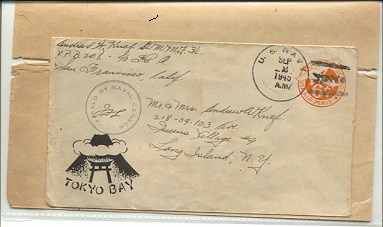 Andrew A. Knief
V.P.B 208 - % F.P.O
San Francisco, Calif
U.S. NAVY
SEP
2
1945
A.M.
AIR MAIL
PASSED BY NAVAL CENSOR
Mr. & Mrs. Andrew A. Knief
218-09-103 Ave.
Queens Village
Long Island, N.Y.
TOKYO BAY